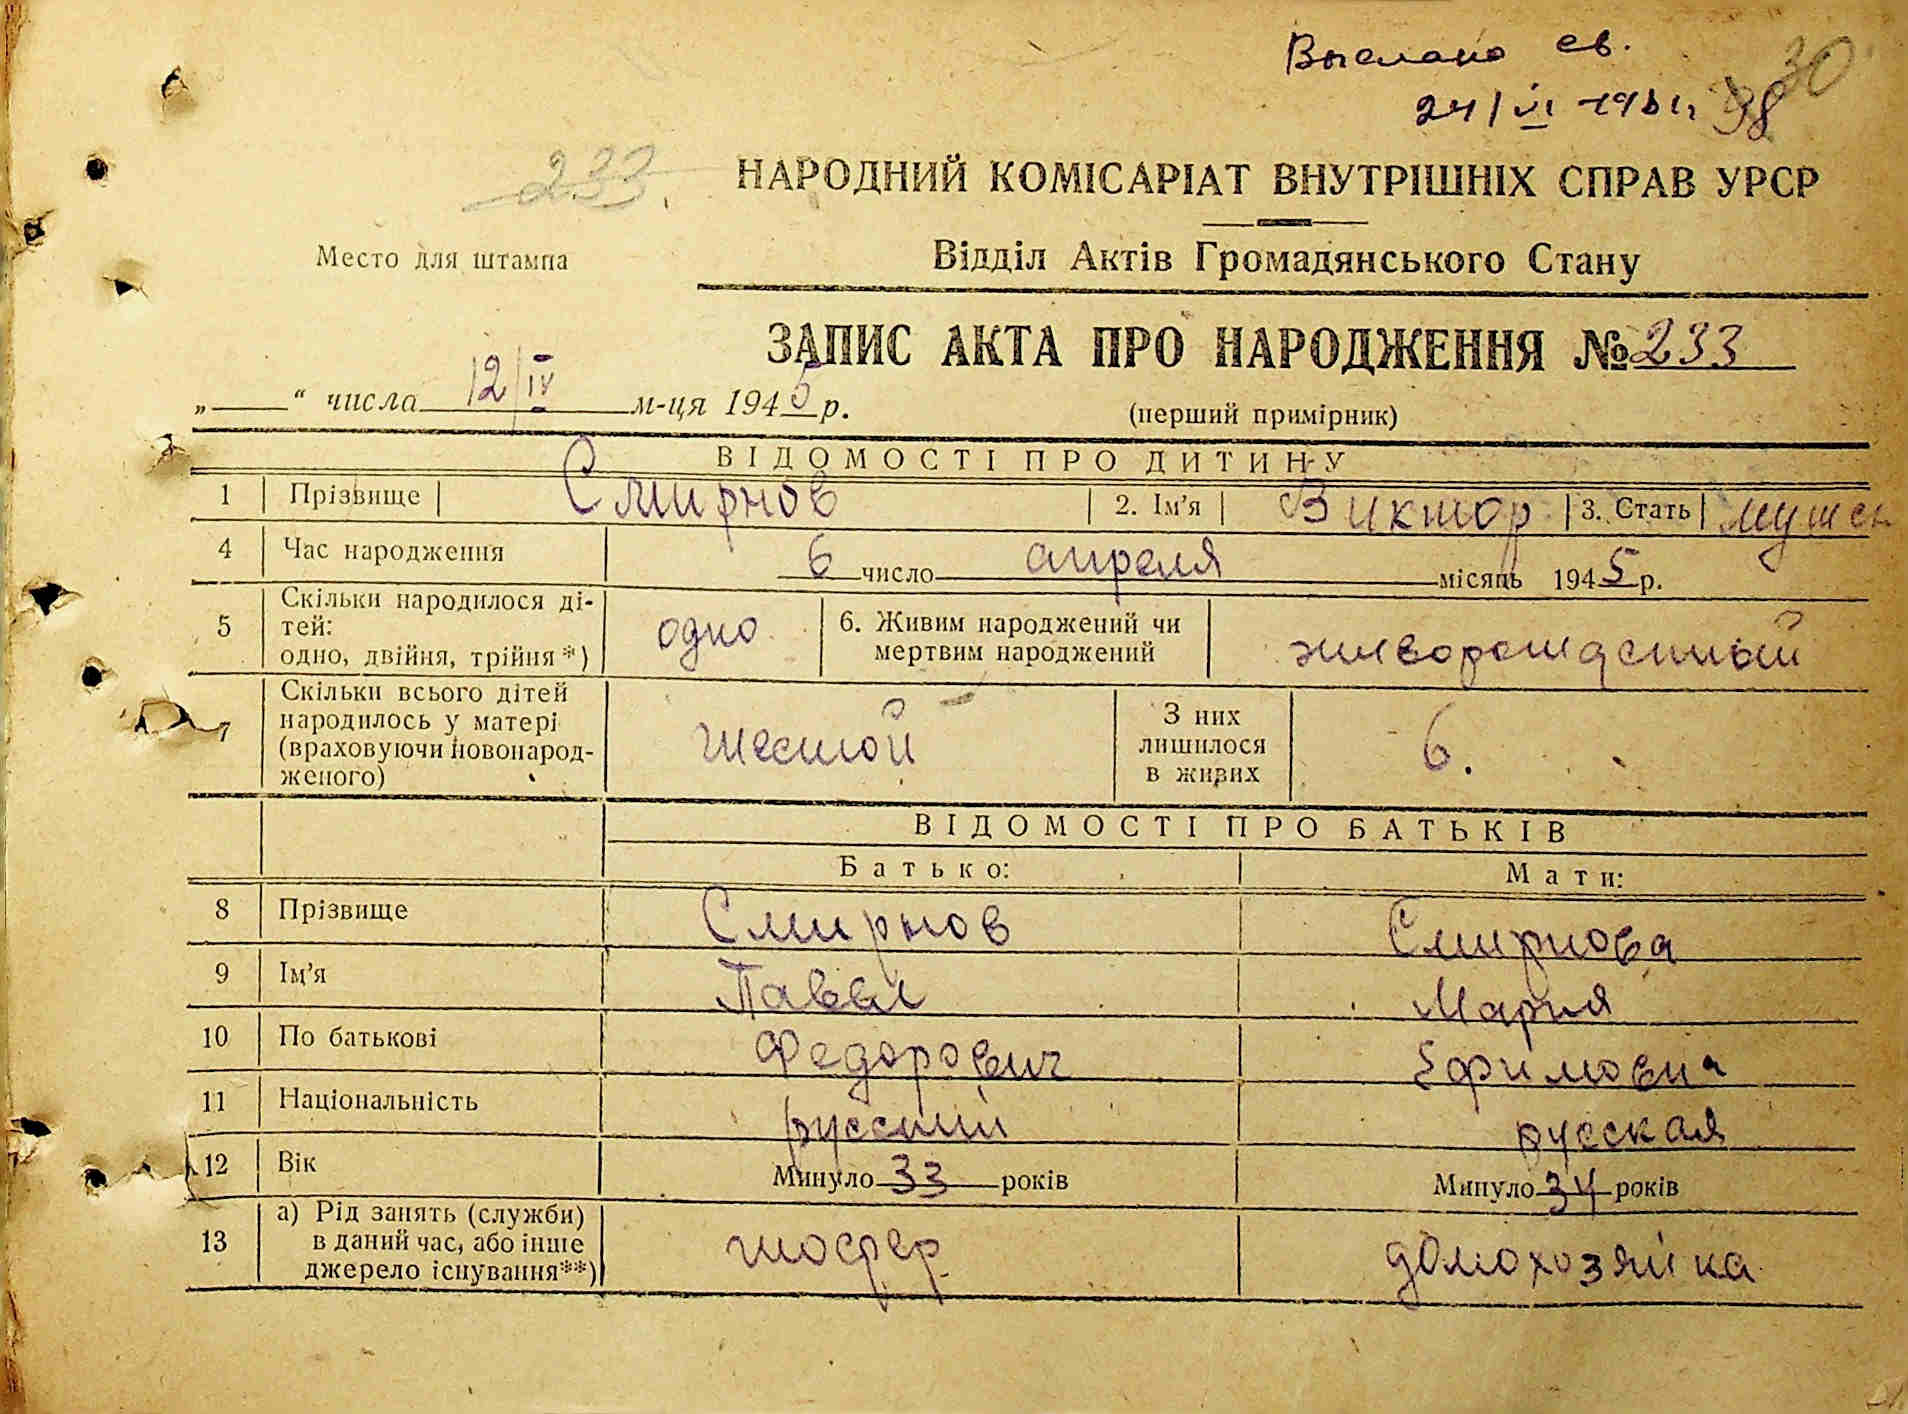 Выслано св.
24/VI 1961г. 30
38
233
НАРОДНИЙ КОМІСАРІАТ ВНУТРІШНІХ СПРАВ УРСР
Место для штампа
Відділ Актів Громадянського Стану
ЗАПИС АКТА ПРО НАРОДЖЕННЯ № 233
„ “ числа 12/IV м-ця 1945 р.
(перший примірник)
ВІДОМОСТІ ПРО ДИТИНУ
1 Прізвище Смирнов 2. Ім’я Виктор 3. Стать мужск
4 Час народження 6 число апреля місяць 1945 р.
5 Скільки народилося ді-
тей:
одно, двійня, трійня*) одно 6. Живим народжений чи
мертвим народжений живорожденный
7 Скільки всього дітей
народилось у матері
(враховуючи новонарод-
женого) шестой З них
лишилося
в живих 6.
ВІДОМОСТІ ПРО БАТЬКІВ
Батько: Мати:
8 Прізвище Смирнов Смирнова
9 Ім’я Павел Мария
10 По батькові Федорович Ефимовна
11 Національність русский русская
12 Вік Минуло 33 років Минуло 34 років
13 а) Рід занять (служби)
в даний час, або інше
джерело існування**) шофер домохозяйка